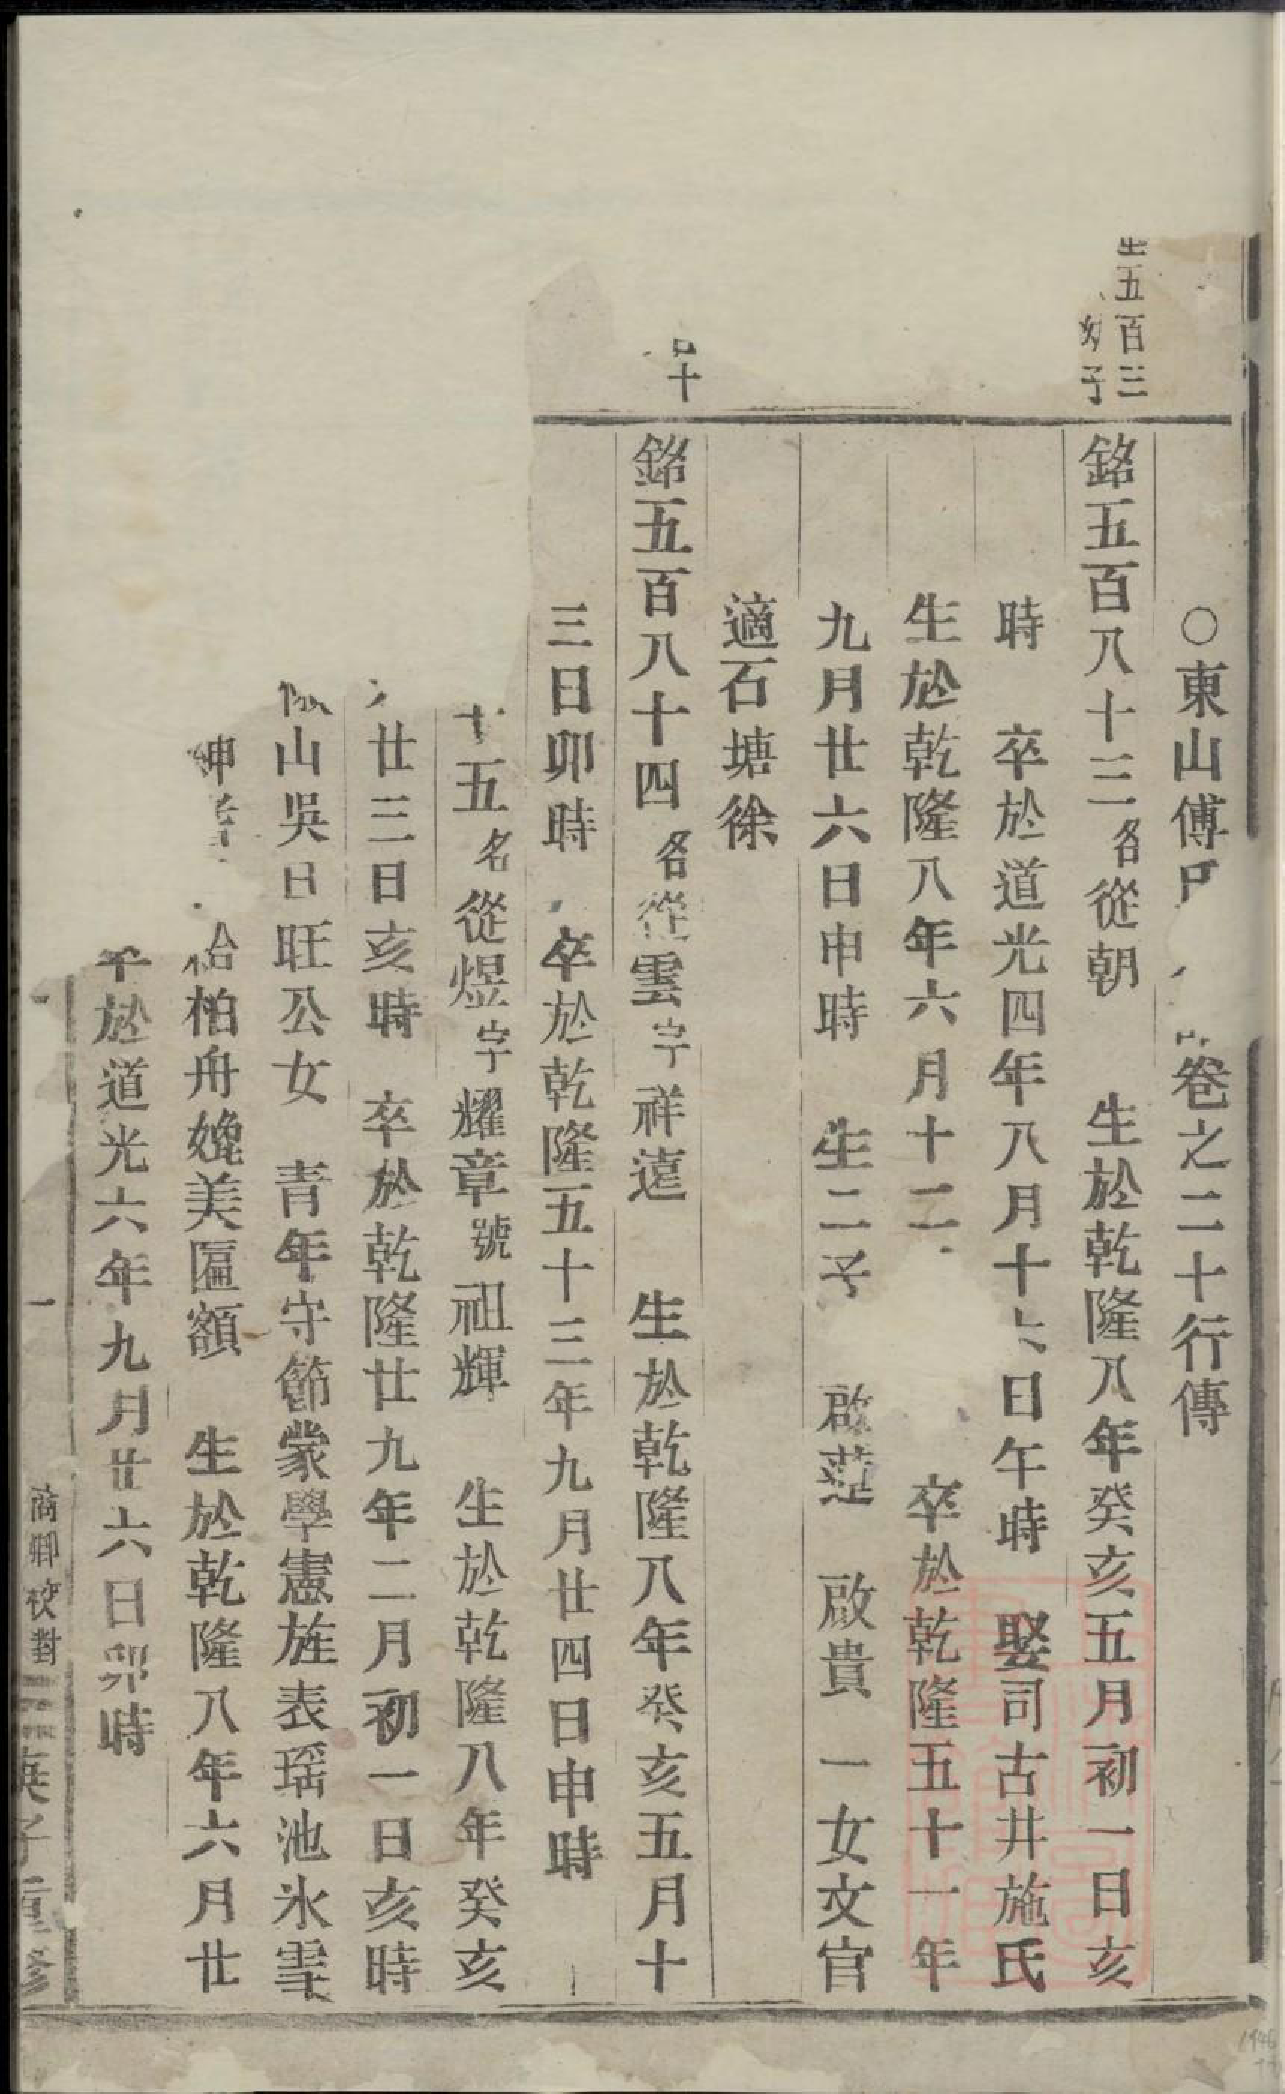 東山傅 卷之二十行傳
五百三
子
銘五百八十三名從朝 生於乾隆八年癸亥五月初一日亥
時 卒於道光四年八月十六日午時 娶司古井施氏
生於乾隆八年六月十二 卒於乾隆五十一年
九月廿六日申時 生二子 啟 啟貴 一女文官
適石塘徐
十
銘五百八十四名從雲字祥遠 生於乾隆八年癸亥五月十
三日卯時 卒於乾隆五十三年九月廿四日申時
十五名從煜字耀章號祖輝 生於乾隆八年癸亥
廿三日亥時 卒於乾隆廿九年二月初一日亥時
山吳日旺公女 青年守節蒙學憲旌表瑶池氷雪
柏舟媲美匾額 生於乾隆八年六月廿
於道光六年九月廿六日卯時
一
商卿校對
重修